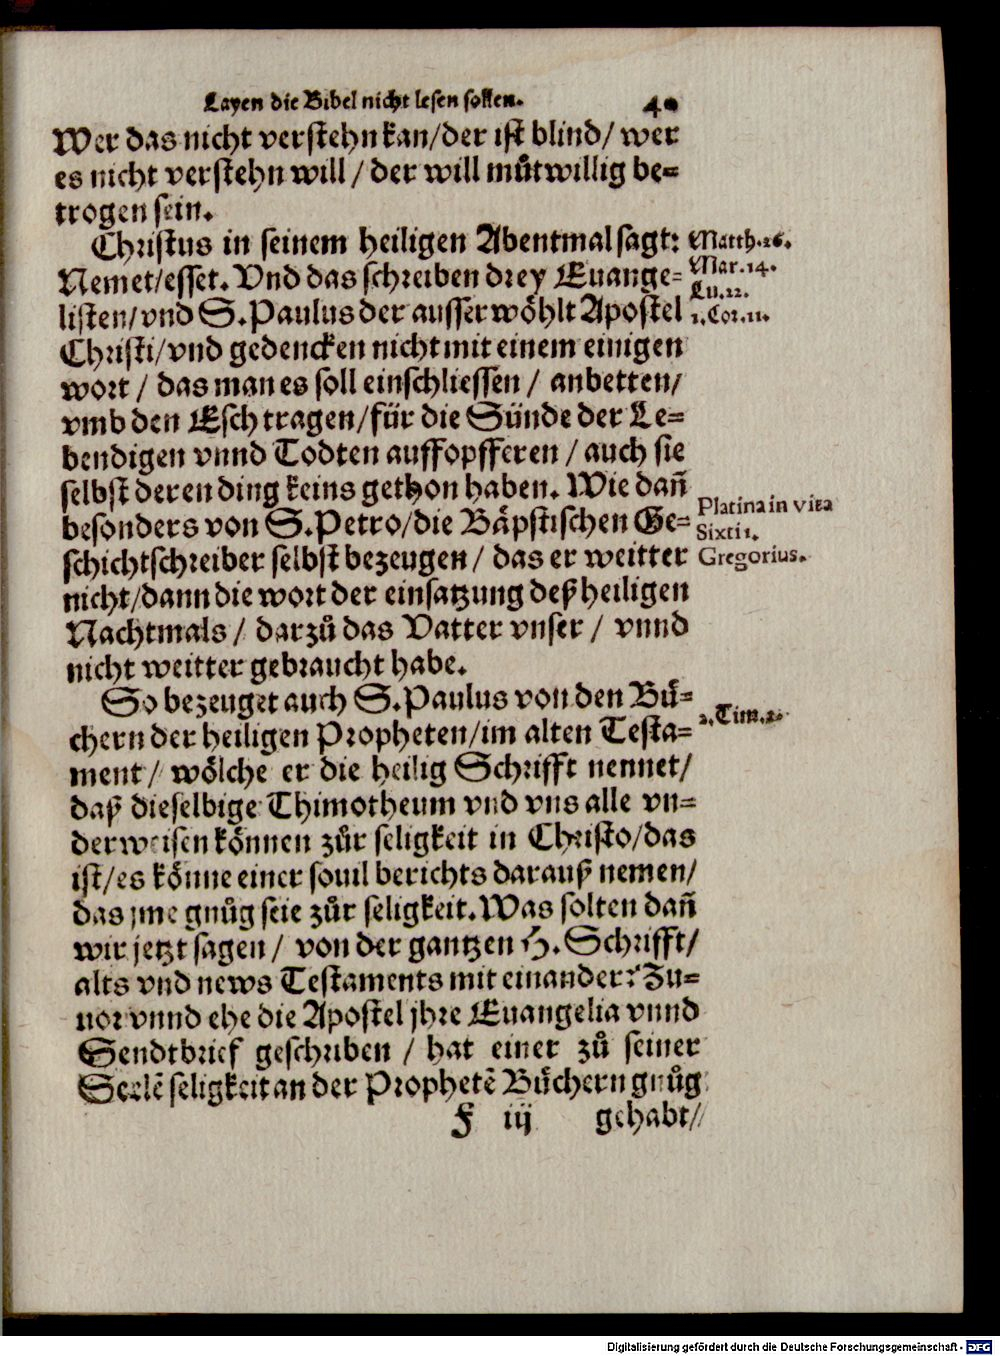 Layen die Bibel nicht lesen sollen. 40
Wer das nicht verstehn kan/der ist blind/ wer
es nicht verstehn will / der will můtwillig be=
trogen sein.
Christus in seinem heiligen Abentmal sagt: Matth.26.
Nemet/esset. Vnd das schreiben drey Euange= Mar.14.
Lu.22.
listen/vnd S.Paulus der ausserwöhlt Apostel 1.Cor.11.
Christi/vnd gedencken nicht mit einem einigen
wort / das man es soll einschliessen / anbetten/
vmb den Esch tragen/für die Sünde der Le=
bendigen vnnd Todten auffopfferen / auch sie
selbst deren ding keins gethon haben. Wie dañ
besonders von S.Petro/die Bäpstischen Ge= Platina in vita
Sixti 1.
schichtschreiber selbst bezeugen / das er weitter Gregorius.
nicht/dann die wort der einsatzung deß heiligen
Nachtmals / darzů das Vatter vnser / vnnd
nicht weitter gebraucht habe.
So bezeuget auch S.Paulus von den Bü=
chern der heiligen Propheten/im alten Testa= 2.Tim.3.
ment / wölche er die heilig Schrifft nennet/
daß dieselbige Thimotheum vnd vns alle vn=
derweisen können zůr seligkeit in Christo/das
ist/es könne einer souil berichts darauß nemen/
das jme gnůg seie zůr seligkeit. Was solten dañ
wir jetzt sagen / von der gantzen H. Schrifft/
alts vnd news Testaments mit einander? Zu=
uor vnnd ehe die Apostel jhre Euangelia vnnd
Sendtbrief geschriben / hat einer zů seiner
Seelē seligkeit an der Prophetē Büchern gnůg
F iij gehabt/
Digitalisierung gefördert durch die Deutsche Forschungsgemeinschaft - DFG